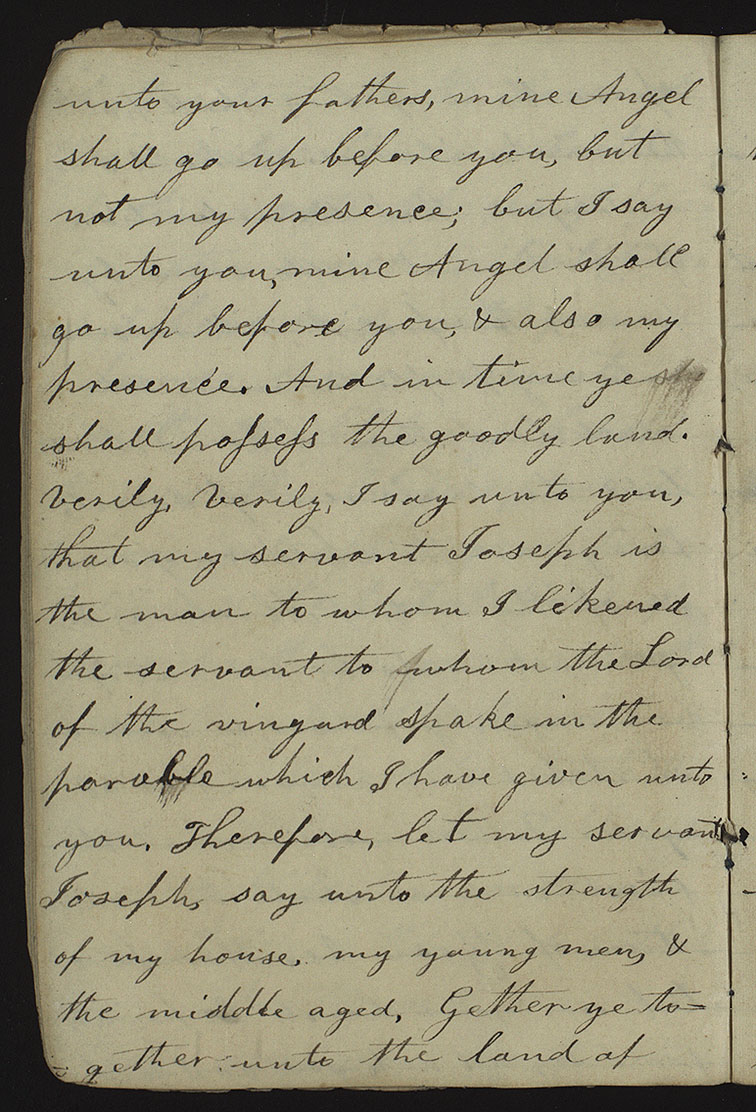 unto your fathers, mine Angel
shall go up before you, but
not my presence; but I say
unto you, mine Angel shall
go up before you, & also my
presence. And in time ye
shall possess the goodly land.
Verily, Verily, I say unto you,
that my servant Joseph is
the man to whom I likened
the servant to whom the Lord
of the vingard spake in the
parable which I have given unto
you. Therefore, let my servant
Joseph, say unto the strength
of my house. my young men, &
the middle aged, Gether ye to=
=gether unto the land of